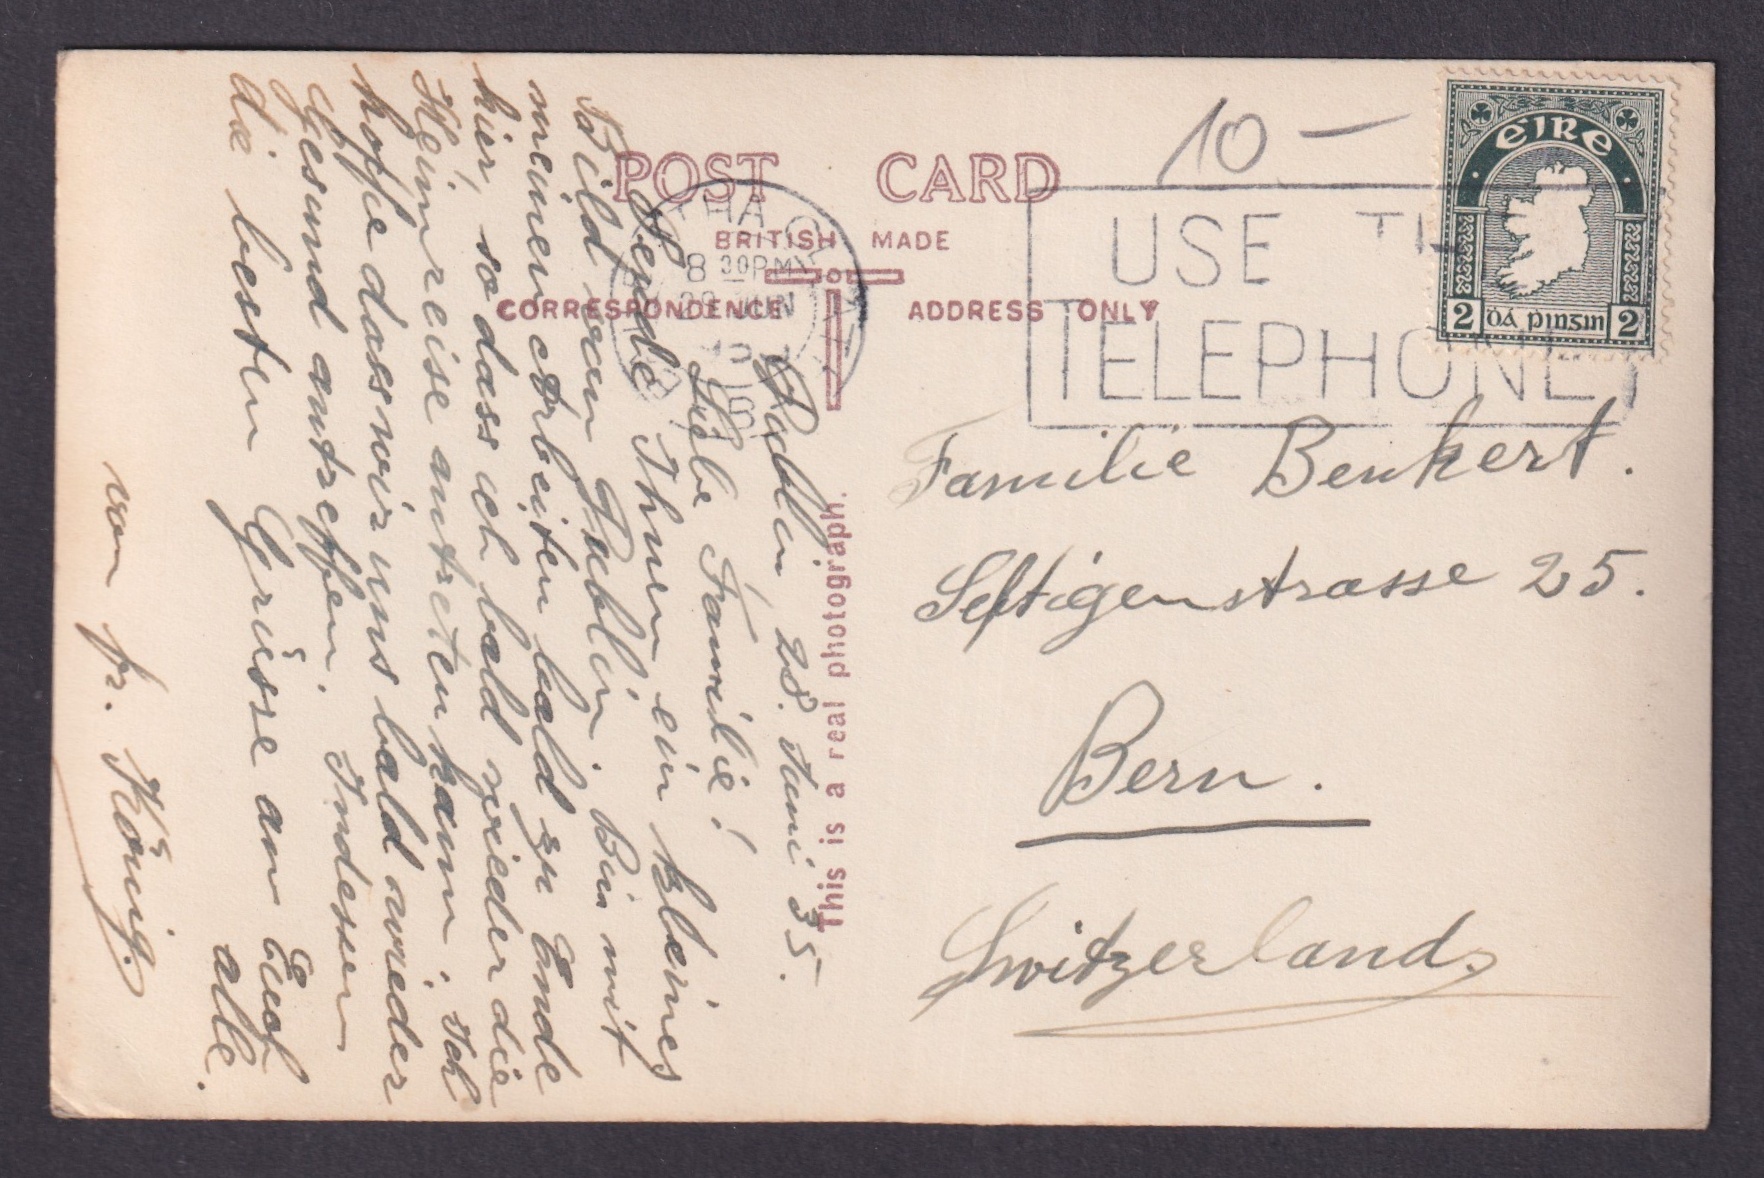 POST CARD
BRITISH MADE
CORRESPONDENCE
ADDRESS ONLY
This is a real photograph.
10 —
USE THE
TELEPHONE
8 30PM
JUN
ÉIRE
2 Dá pingin 2
Dublin 28. Juni 35.
Liebe Familie!
Sende Ihnen ein kleines
Bild von Dublin. Bin mit
meinen Arbeiten bald zu Ende
hier, so dass ich bald wieder die
Heimreise antreten kann. Ich
hoffe dass wir uns bald wieder
Gesund antreffen. Indessen
die besten Grüsse an Euch
alle.
von fr. König.
Familie Benkert.
Seftigenstrasse 25.
Bern.
Switzerland.